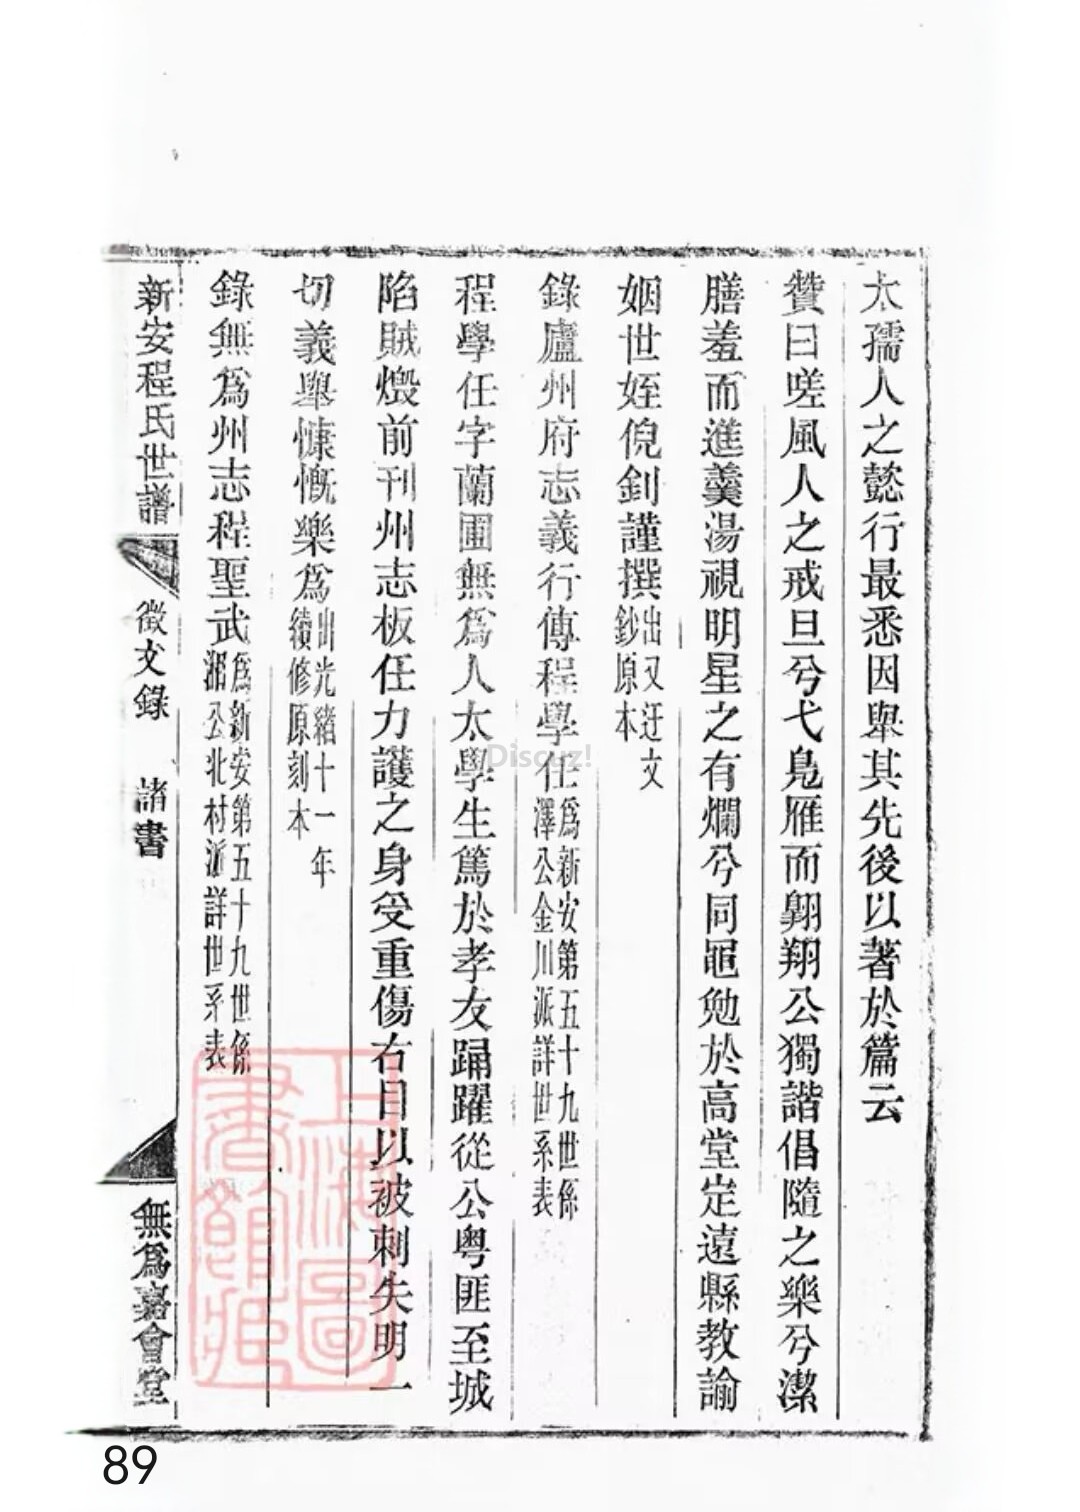 太孺人之懿行最悉因舉其先後以著於篇云
贊曰嗟風人之戒旦兮弋鳧雁而翱翔公獨諧倡隨之樂兮潔
膳羞而進羹湯視明星之有爛兮同黽勉於高堂定遠縣教諭
姻世姪倪釗謹撰出又迂文鈔原本
錄廬州府志義行傳程學任為新安第五十九世係澤公金川派詳世系表
程學任字蘭圃無為人太學生篤於孝友踴躍從公粵匪至城
陷賊燬前刊州志板任力護之身受重傷右目以被刺失明一
切義舉慷慨樂為出光緒十一年續修原刻本
錄無為州志程聖武為新安第五十九世係湘公北村派詳世系表
新安程氏世譜
徵文錄
諸書
無為嘉會堂
上海圖書館藏
Discuz!
89